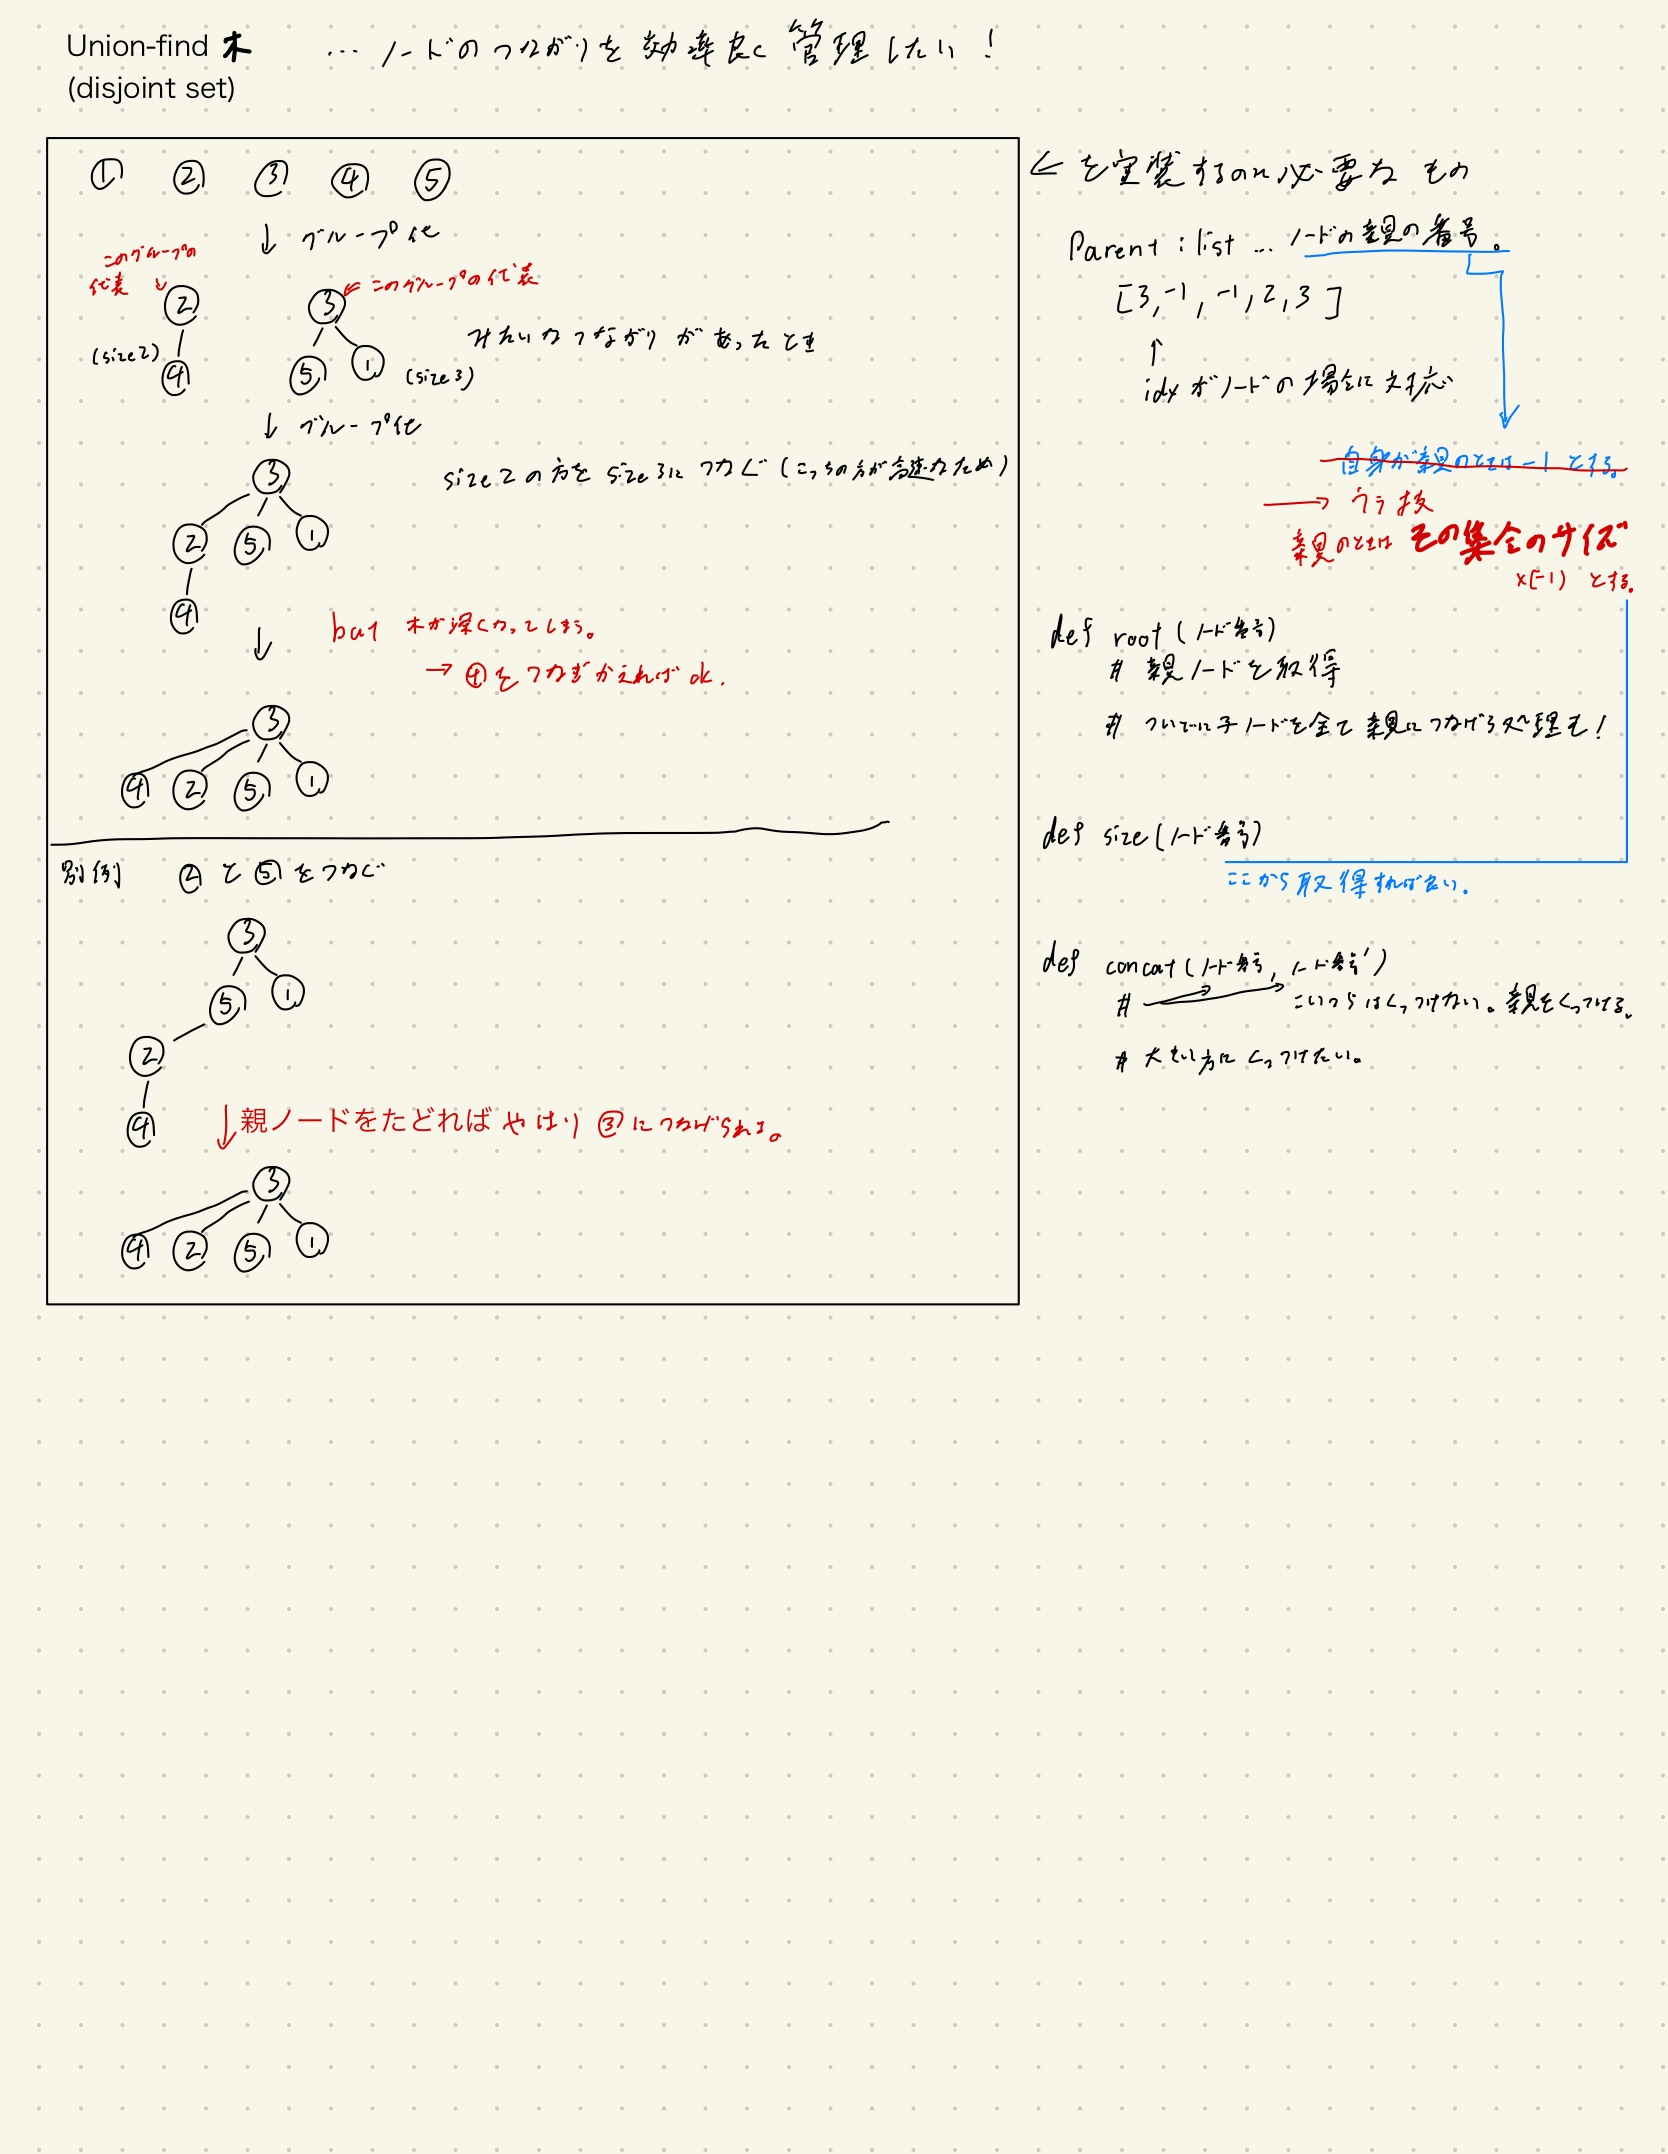 Union-find 木 … ノードのつながりを効率良く管理したい！
(disjoint set)
① ② ③ ④ ⑤
↓ グループ化
このグループの
代表
② ③ ← このグループの代表
(size2) ④ ⑤ ① (size3)
みたいなつながりがあったとき
↓ グループ化
③
size 2 の方を size 3に つなぐ (こっちの方が高速なため)
② ⑤ ①
④
↓ but 木が深くなってしまう。
→ ④をつなぎかえれば ok.
③
④ ② ⑤ ①
別例 ② と ⑤ をつなぐ
③
⑤ ①
②
④
↓親ノードをたどれば やはり ③ につなげられる。
③
④ ② ⑤ ①
← を実装するのに必要な もの
Parent : list … ノードの親の番号。
[3, -1, -1, 2, 3]
↑
idx がノードの場合に対応
自身が親のときは -1 とする。
→ ウラ技
親のときは その集合のサイズ
×(-1) とする。
def root (ノード番号)
# 親ノードを取得
# ついでに子ノードを全て 親につなげる処理も！
def size (ノード番号)
ここから取得すれば良い。
def concat (ノード番号, ノード番号')
# こいつらはくっつけない。親をくっつける。
# 大きい方に くっつけたい。